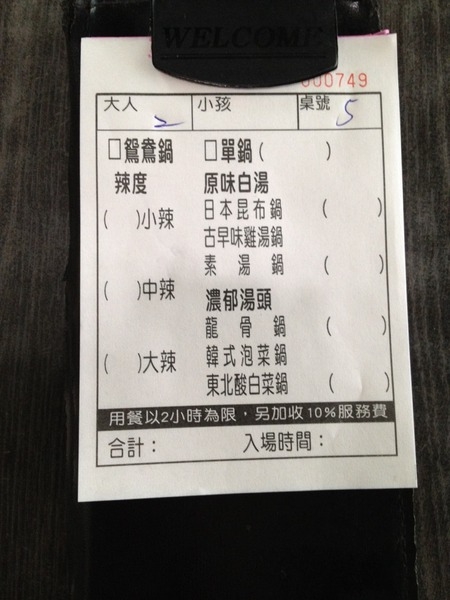 WELCOME
000749
大人 2 小孩 桌號 5
□鴛鴦鍋 □單鍋( )
辣度 原味白湯
日本昆布鍋 ( )
( )小辣
古早味雞湯鍋
素湯鍋 ( )
( )中辣 濃郁湯頭
龍骨鍋 ( )
( )大辣 韓式泡菜鍋
東北酸白菜鍋 ( )
用餐以2小時為限，另加收10%服務費
合計： 入場時間：